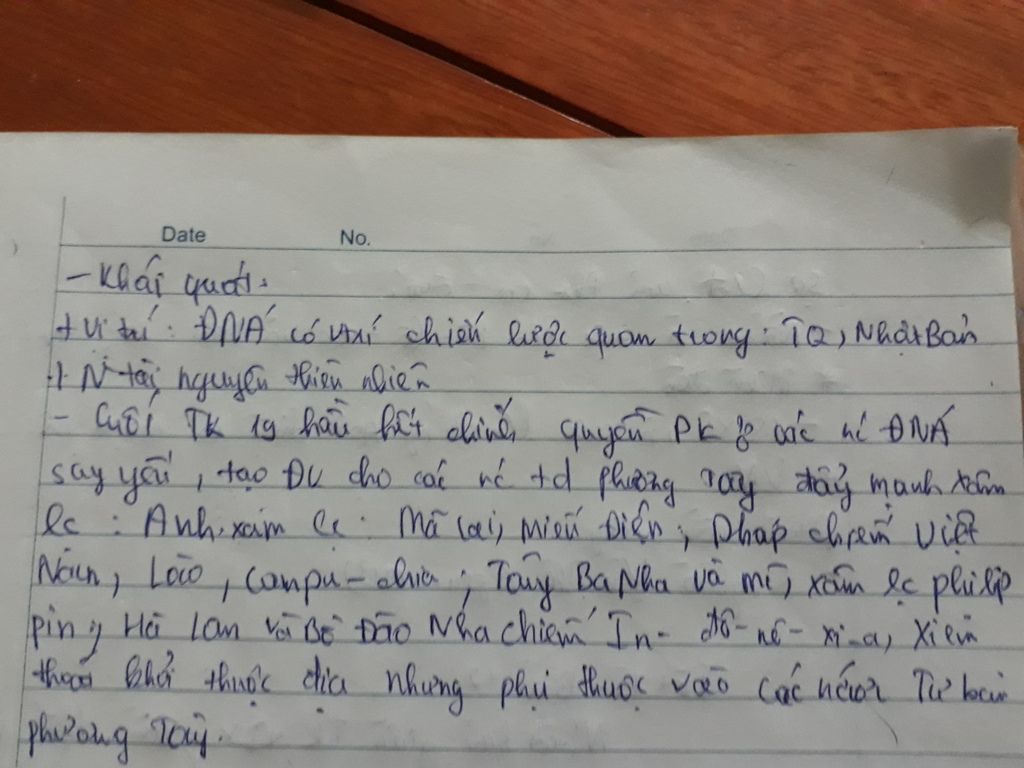 Date No.
- Khái quát:
+ Vị trí: ĐNÁ có vtrí chiến lược quan trọng: TQ, Nhật Bản
+ N tài nguyên thiên nhiên
- Cuối TK 19 hầu hết chính quyền PK ở các nc ĐNÁ
say yếu, tạo ĐK cho các nc td phương Tay đẩy mạnh xâm
lc: Anh xâm lc: Mã lai, Miến Điện; Pháp chiếm Việt
Nam, Lào, Campu-chia; Tây Ba Nha và mĩ, xâm lc philip
pin; Hà Lan và Bồ Đào Nha chiếm In-đô-nê-xi-a, Xiêm
thoát khỏi thuộc địa nhưng phụ thuộc vào các nước Tư bản
phương Tây.